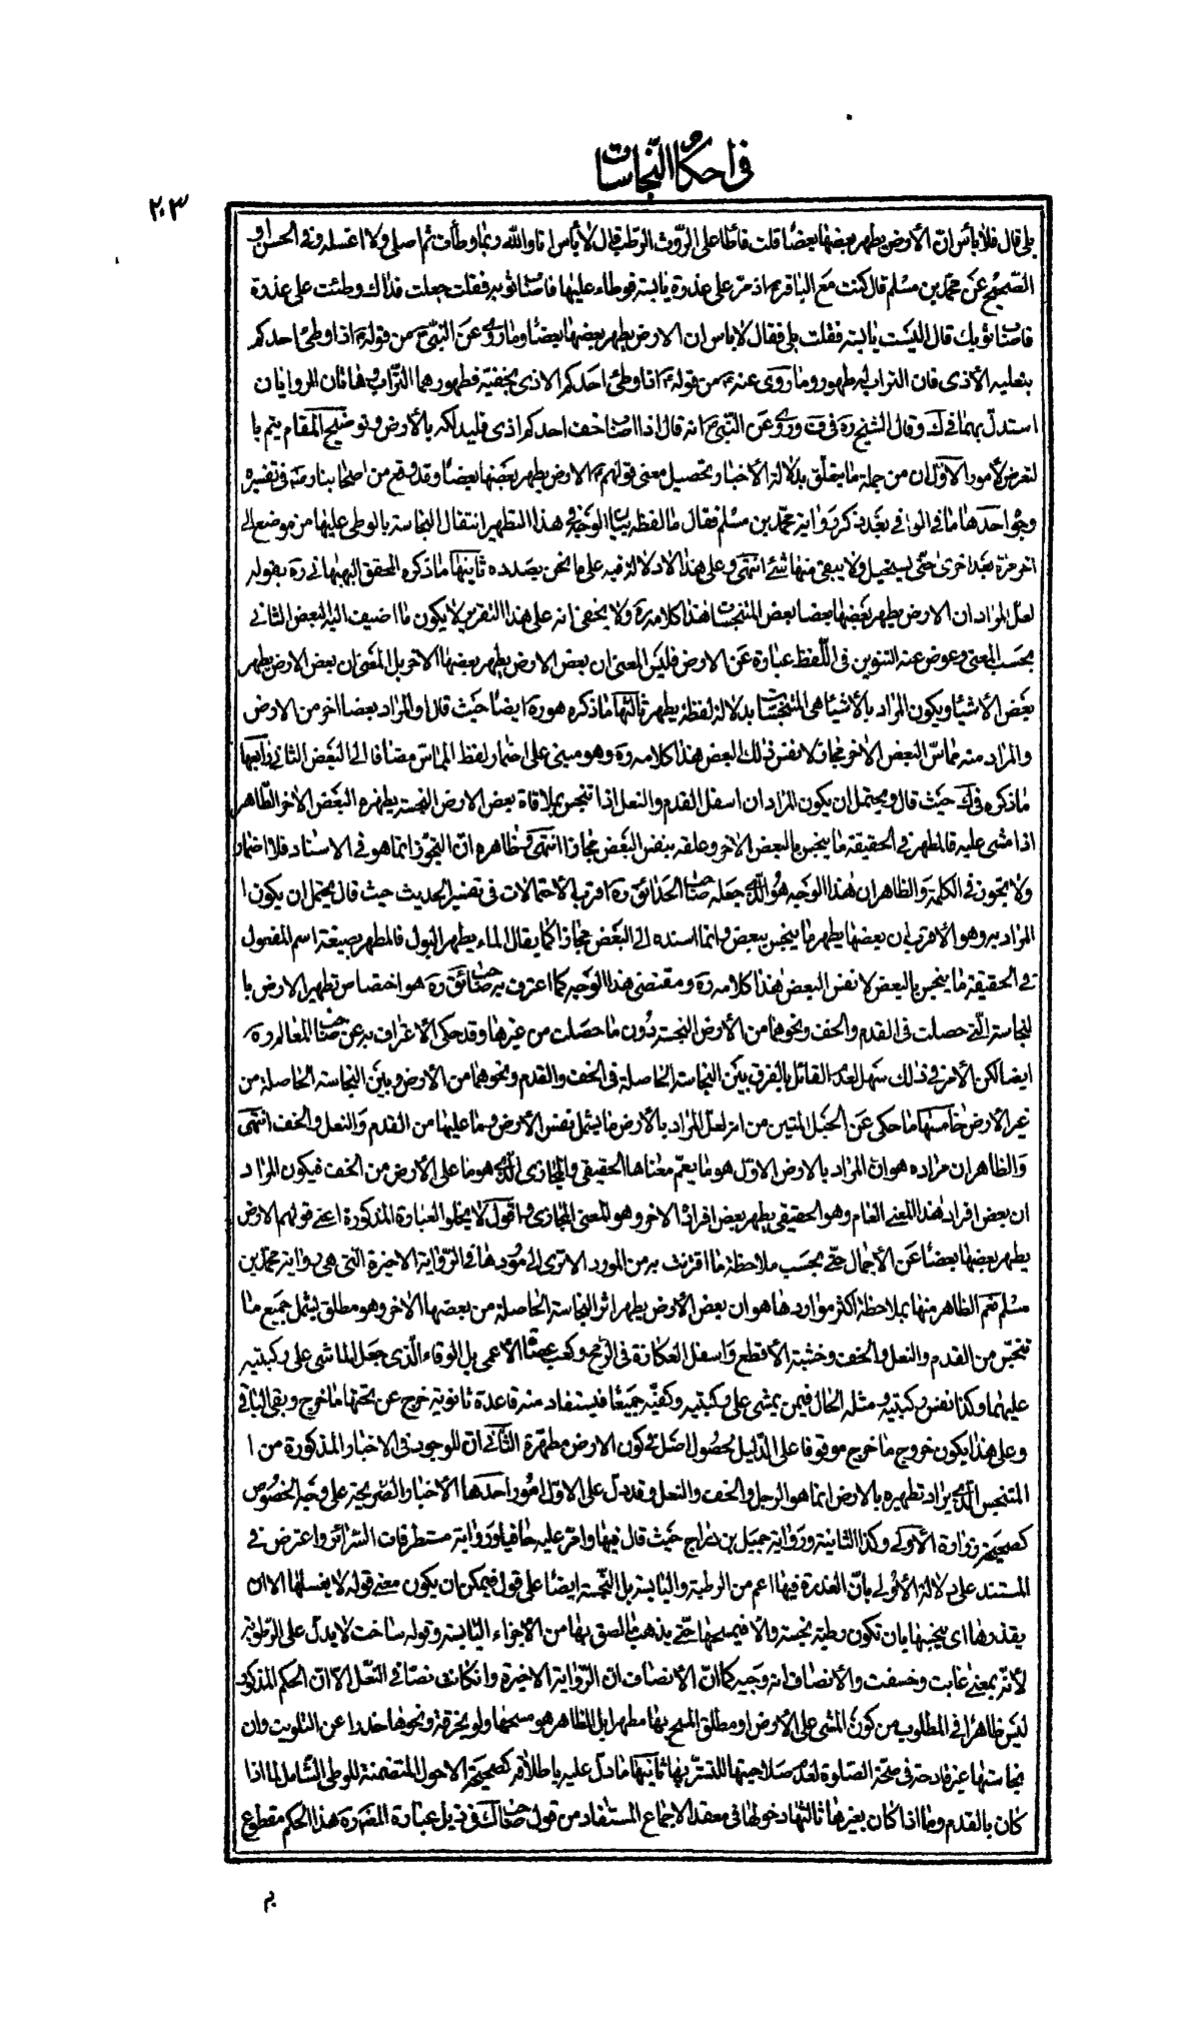 في احكام النجاسات
٢٠٣
بلى قال فلا بأس ان الأرض يطهر بعضها بعضا قلت فاطأ على الروث الرطب قال لا بأس انا والله ربما وطأت ثم اصلى ولا اغسله وفى الحسن او
الصحيح عن محمد بن مسلم قال كنت مع الباقر ع اذ مر على عذرة يابسة فوطاء عليها فاصابت ثوبه فقلت جعلت فداك وطئت على عذرة
فاصابت ثوبك قال اليست يابسة فقلت بلى فقال لا باس ان الارض يطهر بعضها بعضا وما روى عن النبي ص من قوله ع اذا وطئ احدكم
بنعليه الأذى فان التراب له طهور وما روى عنه ص من قوله ع اذا وطئ احدكم الاذى بخفيه فطهورهما التراب وهاتان الروايتان
استدل بهما في ك وقال الشيخ ره في ف وروى عن النبي ص انه قال اذا اصاب خف احدكم اذى فليدلكه بالأرض وتوضيح المقام يتم با
لتعرض لأمور الأول ان من جملة ما يتعلق بدلالة الأخبار تحصيل معنى قولهم ع الارض يطهر بعضها بعضا وقد وقع من اصحابنا رضه في تفسيره
وجوه احدها ما في الوافي بعد ذكر رواية محمد بن مسلم فقال ما لفظه بيان الوجه في هذا التطهير انتقال النجاسة بالوطى عليها من موضع الى
اخر مرة بعد اخرى حتى يستحيل ولا يبقى منها شئ انتهى وعلى هذا لا دلالة فيه على ما نحن بصدده ثانيها ما ذكره المحقق البهبهاني ره بقوله
لعل المراد ان الارض يطهر بعضها بعضا بعض المتنجسات هذا كلامه ره ولا يخفى انه على هذا التقرير لا يكون ما اضيف اليه البعض الثاني
بحسب المعنى وعوض عنه التنوين في اللفظ عبارة عن الارض فليس المعنى ان بعض الارض يطهر بعضها الاخر بل المعنى ان بعض الارض يطهر
بعض الأشياء ويكون المراد بالأشياء هي المتنجسات بدلالة لفظة يطهر ثالثها ما ذكره هو ره ايضا حيث قال او المراد بعضا اخر من الارض
والمراد منه مماس البعض الاخر مجازا لا نفس ذلك البعض هذا كلامه ره وهو مبنى على اضمار لفظ المماس مضافا الى البعض الثاني رابعها
ما ذكره في ك حيث قال ويحتمل ان يكون المراد ان اسفل القدم والنعل اذا تنجس بملاقاة بعض الارض النجسة يطهره البعض الاخر الطاهر
اذا مشى عليه فالمطهر في الحقيقة ما ينجس بالبعض الاخر وعلقه بنفس البعض مجازا انتهى وظاهره ان التجوز انما هو في الاسناد فلا اضمار
ولا تجوز في الكلمة والظاهر ان هذا الوجه هو الذي جعله صاحب الحدائق ره اقرب الاحتمالات في تفسير الحديث حيث قال يحتمل ان يكون ا
لمراد به وهو الاقرب ان بعضها يطهر ما ينجس ببعض وانما اسنده الى البعض مجازا كما يقال الماء يطهر البول فالمطهر بصيغة اسم المفعول
في الحقيقة ما ينجس بالبعض لا نفس البعض هذا كلامه ره ومقتضى هذا الوجه كما اعترف به صاحب ئق ره هو اختصاص تطهير الارض با
لنجاسة التي حصلت في القدم والخف ونحوهما من الأرض النجسة دون ما حصلت من غيرها وقد حكى الاعتراف به عن صاحب المعالم ره
ايضا لكن الأمر في ذلك سهل لعدم القائل بالفرق بين النجاسة الحاصلة في الخف والقدم ونحوهما من الأرض وبين النجاسة الحاصلة من
غير الأرض خامسها ما حكى عن الحبل المتين من انه لعل المراد بالأرض ما يشمل نفس الأرض وما عليها من القدم والنعل والخف انتهى
والظاهر ان مراده هو ان المراد بالارض الاول هو ما يعم معناها الحقيقي والمجازي الذي هو ما على الأرض من الخف فيكون المراد
ان بعض افراد هذا المعنى العام وهو الحقيقي يطهر بعض افراده الاخر وهو المعنى المجازي واقول لا يخلو العبارة المذكورة اعنى قولهم الارض
يطهر بعضها بعضا عن الأجمال حتى بحسب ملاحظة ما اقترنت به من المورد الا ترى الى موردها في الرواية الاخيرة التي هي رواية محمد بن
مسلم نعم الظاهر منها بملاحظة اكثر مواردها هو ان بعض الأرض يطهر اثر النجاسة الحاصلة من بعضها الاخر وهو مطلق يشمل جميع ما
تنجس من القدم والنعل والخف وخشبة الأقطع واسفل العكازة في الرمح وكعب عصا الأعمى بل الوقاء الذي جعل الماشى على ركبتيه
عليهما وكذا نفس ركبتيه ومثله الحال فيمن يمشى على ركبتيه وكفيه جميعا فيستفاد منه قاعدة ثانوية خرج عن تحتها ما خرج وبقى الباقي
وعلى هذا يكون خروج ما خرج موقوفا على الدليل لحصول اصل في كون الارض مطهرة الثاني ان الموجود في الاخبار المذكورة من ا
لمتنجس الذي يراد تطهيره بالارض انما هو الرجل والخف والنعل وقد دل على الاول امور احدها الأخبار الصريحة على وجه الخصوص
كصحيحة زرارة الأولى وكذا الثانية ورواية جميل بن دراج حيث قال فيها وامر عليه حافيا ورواية مستطرفات السرائر واعترض في
المستند على دلالة الأولى بان العذرة فيها اعم من الرطبة واليابسة بل النجسة ايضا على قول فيمكن ان يكون معنى قوله لا يغسلها الا ان
يقذرها اى ينجسها بان تكون رطبة نجسة والا فيمسحها حتى يذهب ما لصق بها من الأجزاء اليابسة وقوله ساخت لا يدل على الرطوبة
لأنه بمعنى غابت وخسفت والأنصاف انه وجيه كما ان الأنصاف ان الرواية الاخيرة وان كانت نصا في النعل الا ان الحكم المذكور
ليس ظاهرا في المطلوب من كون المشى على الأرض او مطلق المسح بها مطهرا بل الظاهر هو مسحها ولو بخرقة ونحوها حذرا عن التلويث وان
نجاستها غير قادحة في صحة الصلوة لعدم صلاحيتها للتستر بها ثانيها ما دل عليه باطلاقه كصحيحة الاحول المتضمنة للوطى الشامل لما اذا
كان بالقدم وما اذا كان بغيرها ثالثها دخولها في معقد الاجماع المستفاد من قول صاحب ك في ذيل عبارة المصنف ره هذا الحكم مقطوع
به